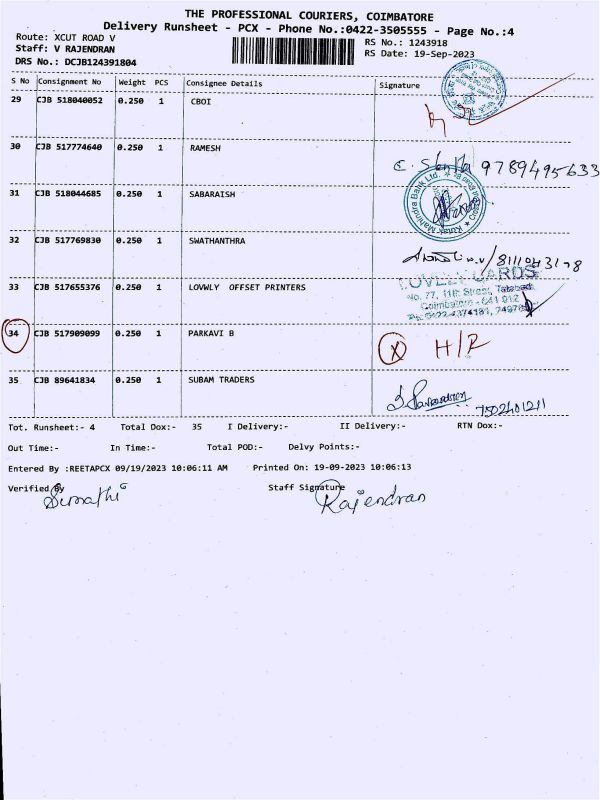 THE PROFESSIONAL COURIERS, COIMBATORE
Delivery Runsheet - PCX - Phone No.:0422-3505555 - Page No.:4
Route: XCUT ROAD V
RS No.: 1243918
Staff: V RAJENDRAN
RS Date: 19-Sep-2023
DRS No.: DCJB124391804
S No Consignment No Weight PCS Consignee Details Signature
29 CJB 518040052 0.250 1 CBOI
30 CJB 517774640 1 0.250 1 RAMESH 9789495633
31 CJB 518044685 0.250 1 SABARAISH Kotak Mahindra Bank Ltd.
32 CJB 517769830 0.250 1 SWATHANTHRA
33 CJB 517655376 0.250 1 LOVWLY OFFSET PRINTERS
LOVELY CARDS
No. 77, 11th Street, Tatabad
Coimbatore - 641 012
34 CJB 517909099 0.250 1 PARKAVI B X H/R
35 CJB 89641834 0.250 1 SUBAM TRADERS
Tot. Runsheet:- 4 Total Dox:- 35 I Delivery:- II Delivery:- RTN Dox:-
Out Time:- In Time:- Total POD:- Delvy Points:-
Entered By :REETAPCX 09/19/2023 10:06:11 AM Printed On: 19-09-2023 10:06:13
Verified By Staff Signature
Rajendran